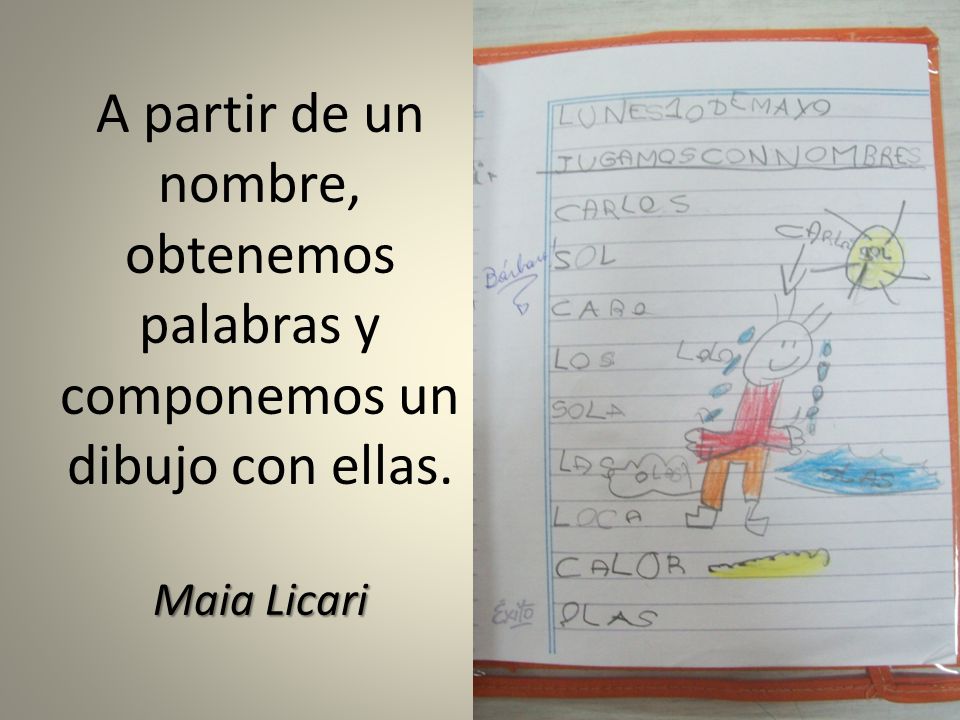 A partir de un
nombre,
obtenemos
palabras y
componemos un
dibujo con ellas.
Maia Licari
LUNES 10 DE MAYO
JUGAMOS CON NOMBRES
CARLOS
SOL
CARO
LOS
SOLA
LAS
LOCA
CALOR
OLAS
Bárbara
Éxito
CARLOS
SOL
LOLO
OLAS